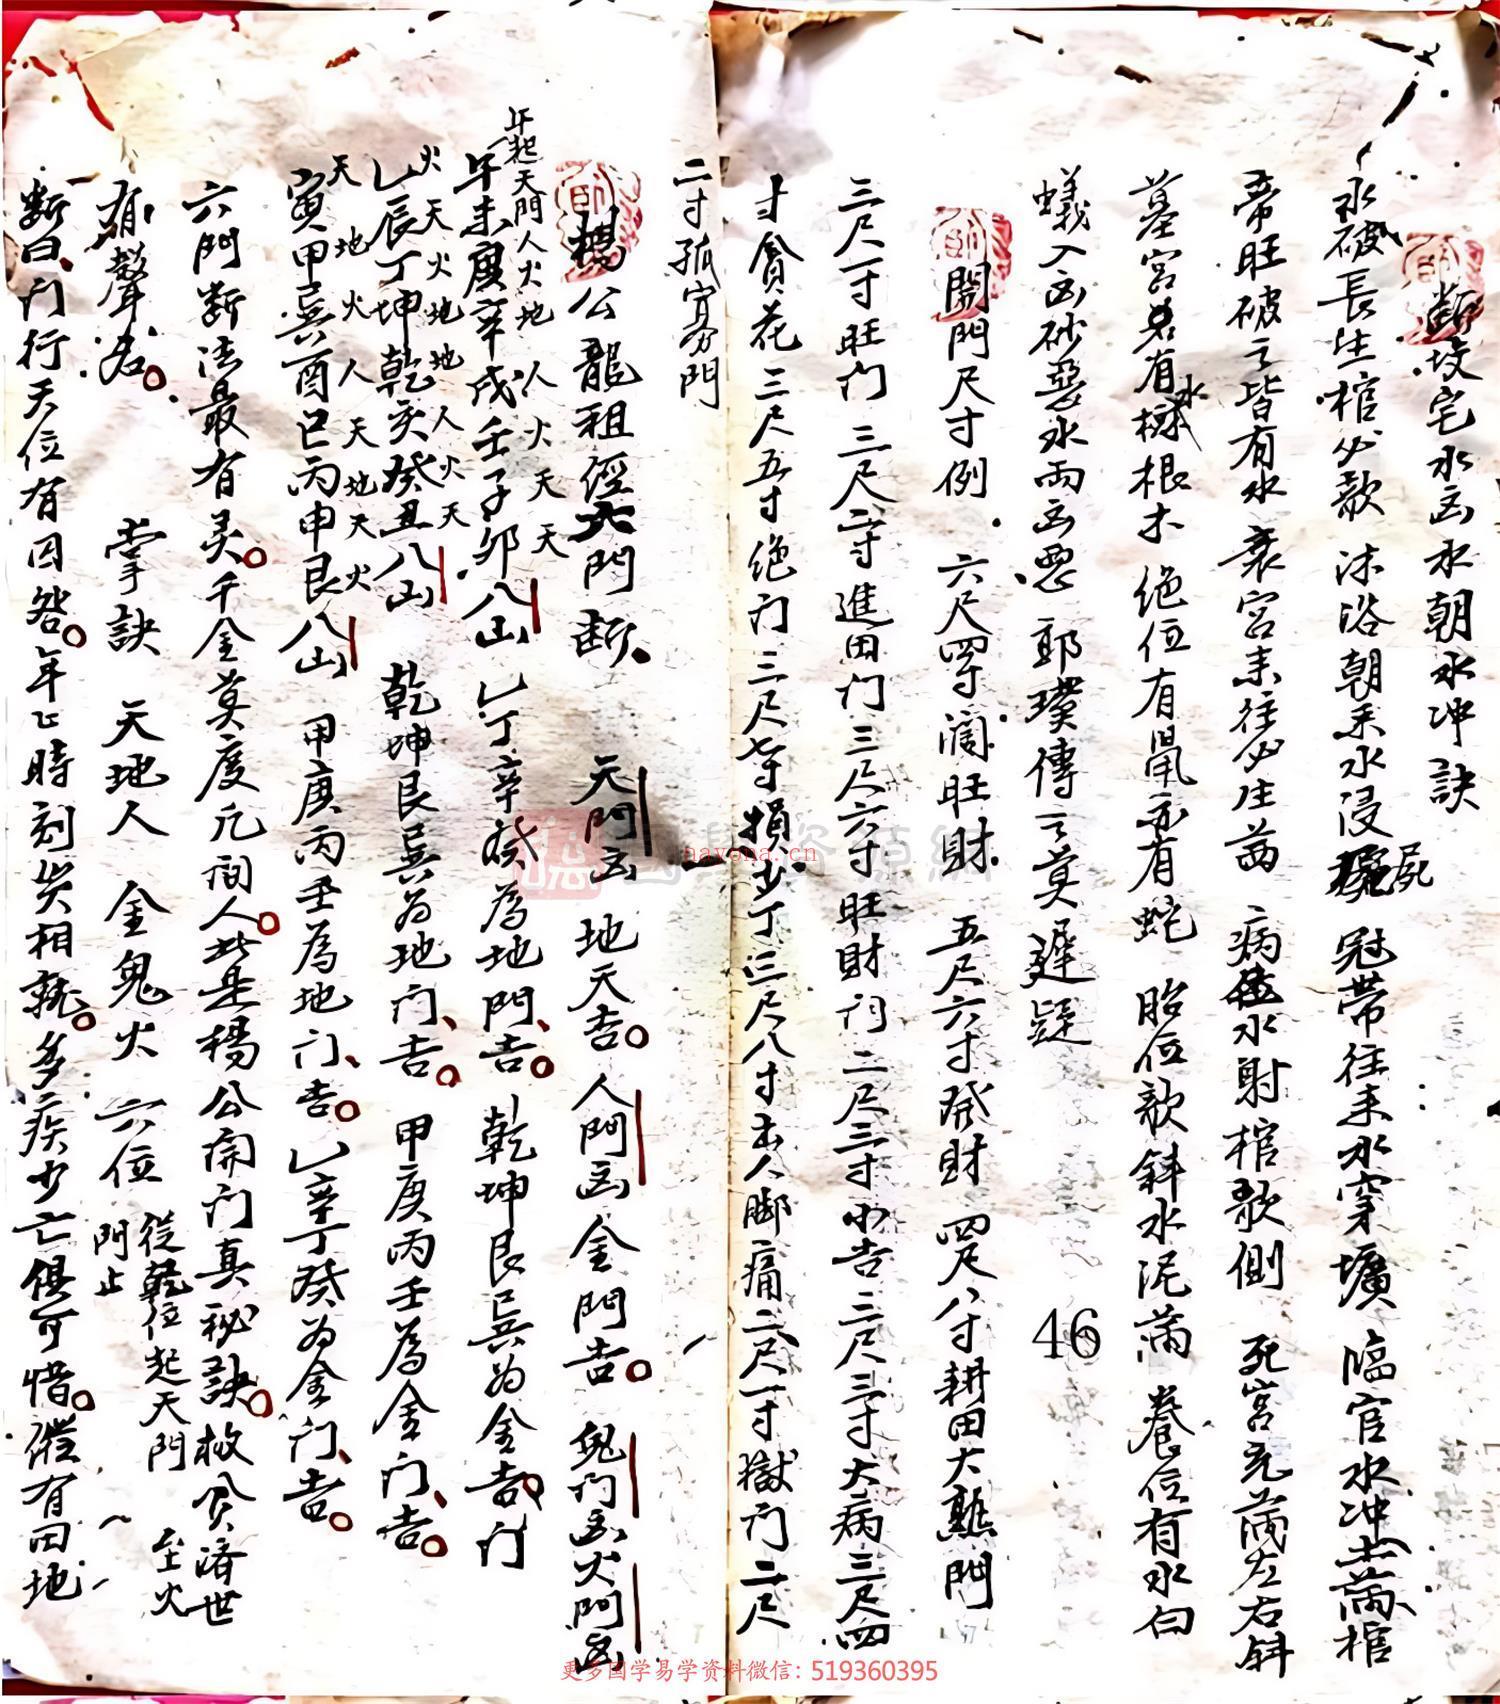 斷坟宅水凶水朝水冲訣
水破長生棺必欹 沐浴朝来水浸屍 冠帶往来水穿壙 臨官水冲土满棺
帝旺破之皆有水 衰宮来往必生茜 病位水射棺欹側 死宮充满左右斜
墓宮若有樹根木 绝位有鼠亦有蛇 胎位欹斜水泥满 養位有水白
蟻入凶砂惡水両凶惡 郭璞傳之莫遲疑
46
開門尺寸例 六尺四寸闊旺財 五尺六寸發財 四尺八寸耕田大熟門
三尺一寸旺门 三尺二寸進田门 三尺六寸旺财门 二尺三寸小吉 二尺三寸大病 三尺四
寸貪花 三尺五寸绝门 三尺七寸損少丁 三尺八寸出人脚痛 二尺一寸獄门 二尺
二寸孤寡門
楊公龍祖經六門断 天門凶 地天吉 人門凶 金門吉 鬼门凶 火門凶
年起天門人火地 人火天天
午未庚辛戌壬子卯八山 乙丁辛癸為地門吉 乾坤艮巽为金吉门
火天火地地人火天
乙辰丁坤乾亥癸丑八山 乾坤艮巽为地门吉 甲庚丙壬為金门吉
天地火人天地天火
寅甲巽酉巳丙申艮八山 甲庚丙壬為地门吉 乙辛丁癸为金门吉
六門断法最有灵 千金莫度凡间人 此是楊公開门真秘訣 救貧済世
有聲名 掌訣 天地人金鬼火六位 從乾位起天門 至火門止
断曰门行天位有因咎 年上時刻災相就 多疾少亡俱可惜 㒑有田地
更多国学易学资料微信: 519360395
國學資源網
nayona.cn